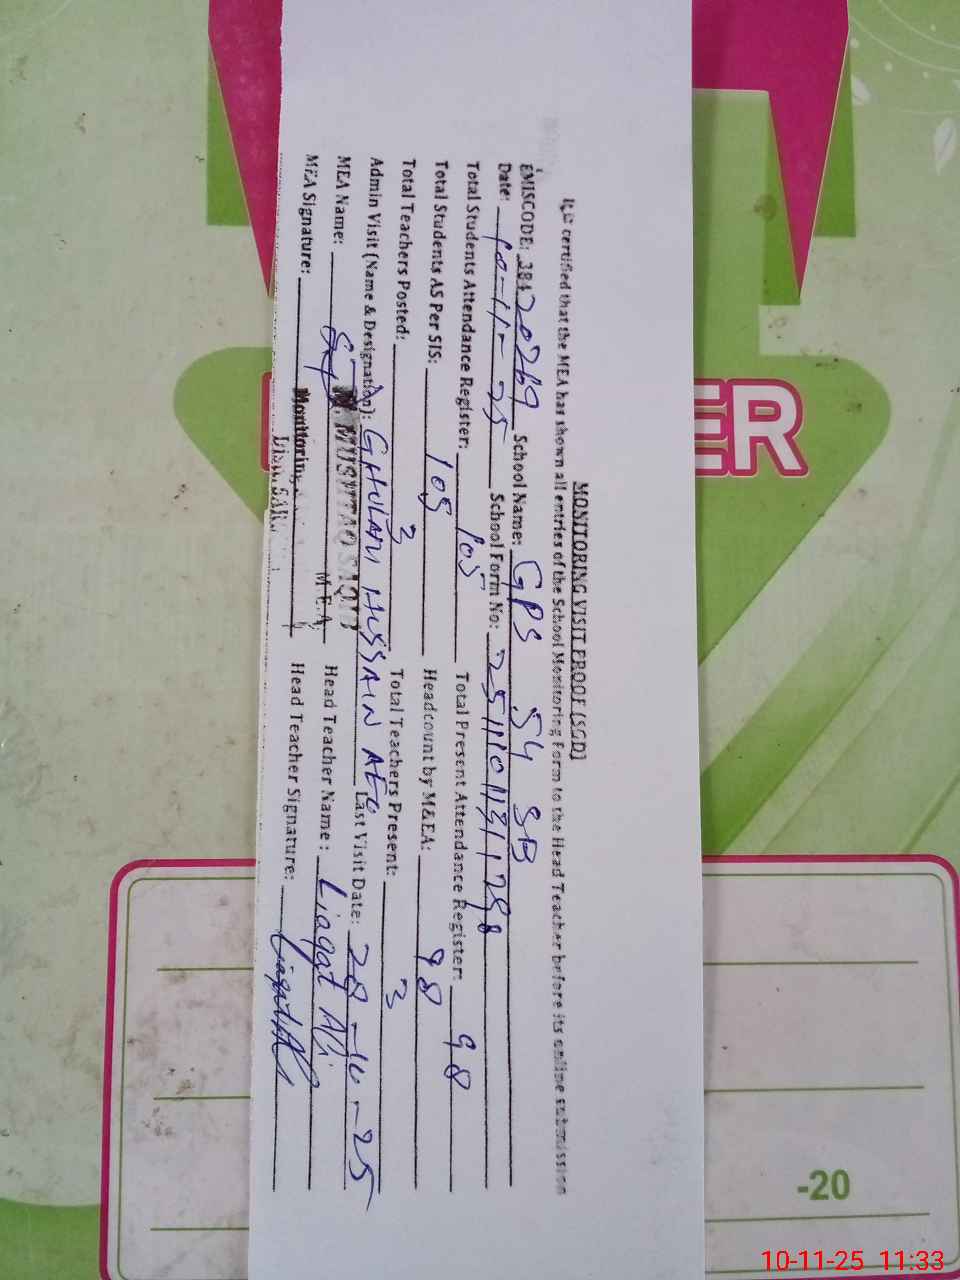 MONITORING VISIT PROOF (SGD)
It is certified that the MEA has shown all entries of the School Monitoring Form to the Head Teacher before its online submission
EMISCODE: 38420269 School Name: GPS 54 SB
Date: 10-11-25 School Form No: 25111011311298
Total Students Attendance Register: 105 Total Present Attendance Register: 98
Total Students AS Per SIS: 105 Headcount by M&EA: 98
Total Teachers Posted: 3 Total Teachers Present: 3
Admin Visit (Name & Designation): GHULAM HUSSAIN AEO Last Visit Date: 28-10-25
MEA Name: M. MUSHTAQ SAQIB M.E.A Head Teacher Name: Liaqat Ali
MEA Signature: Monitoring Head Teacher Signature: Liaqat Ali
ER
-20
10-11-25 11:33